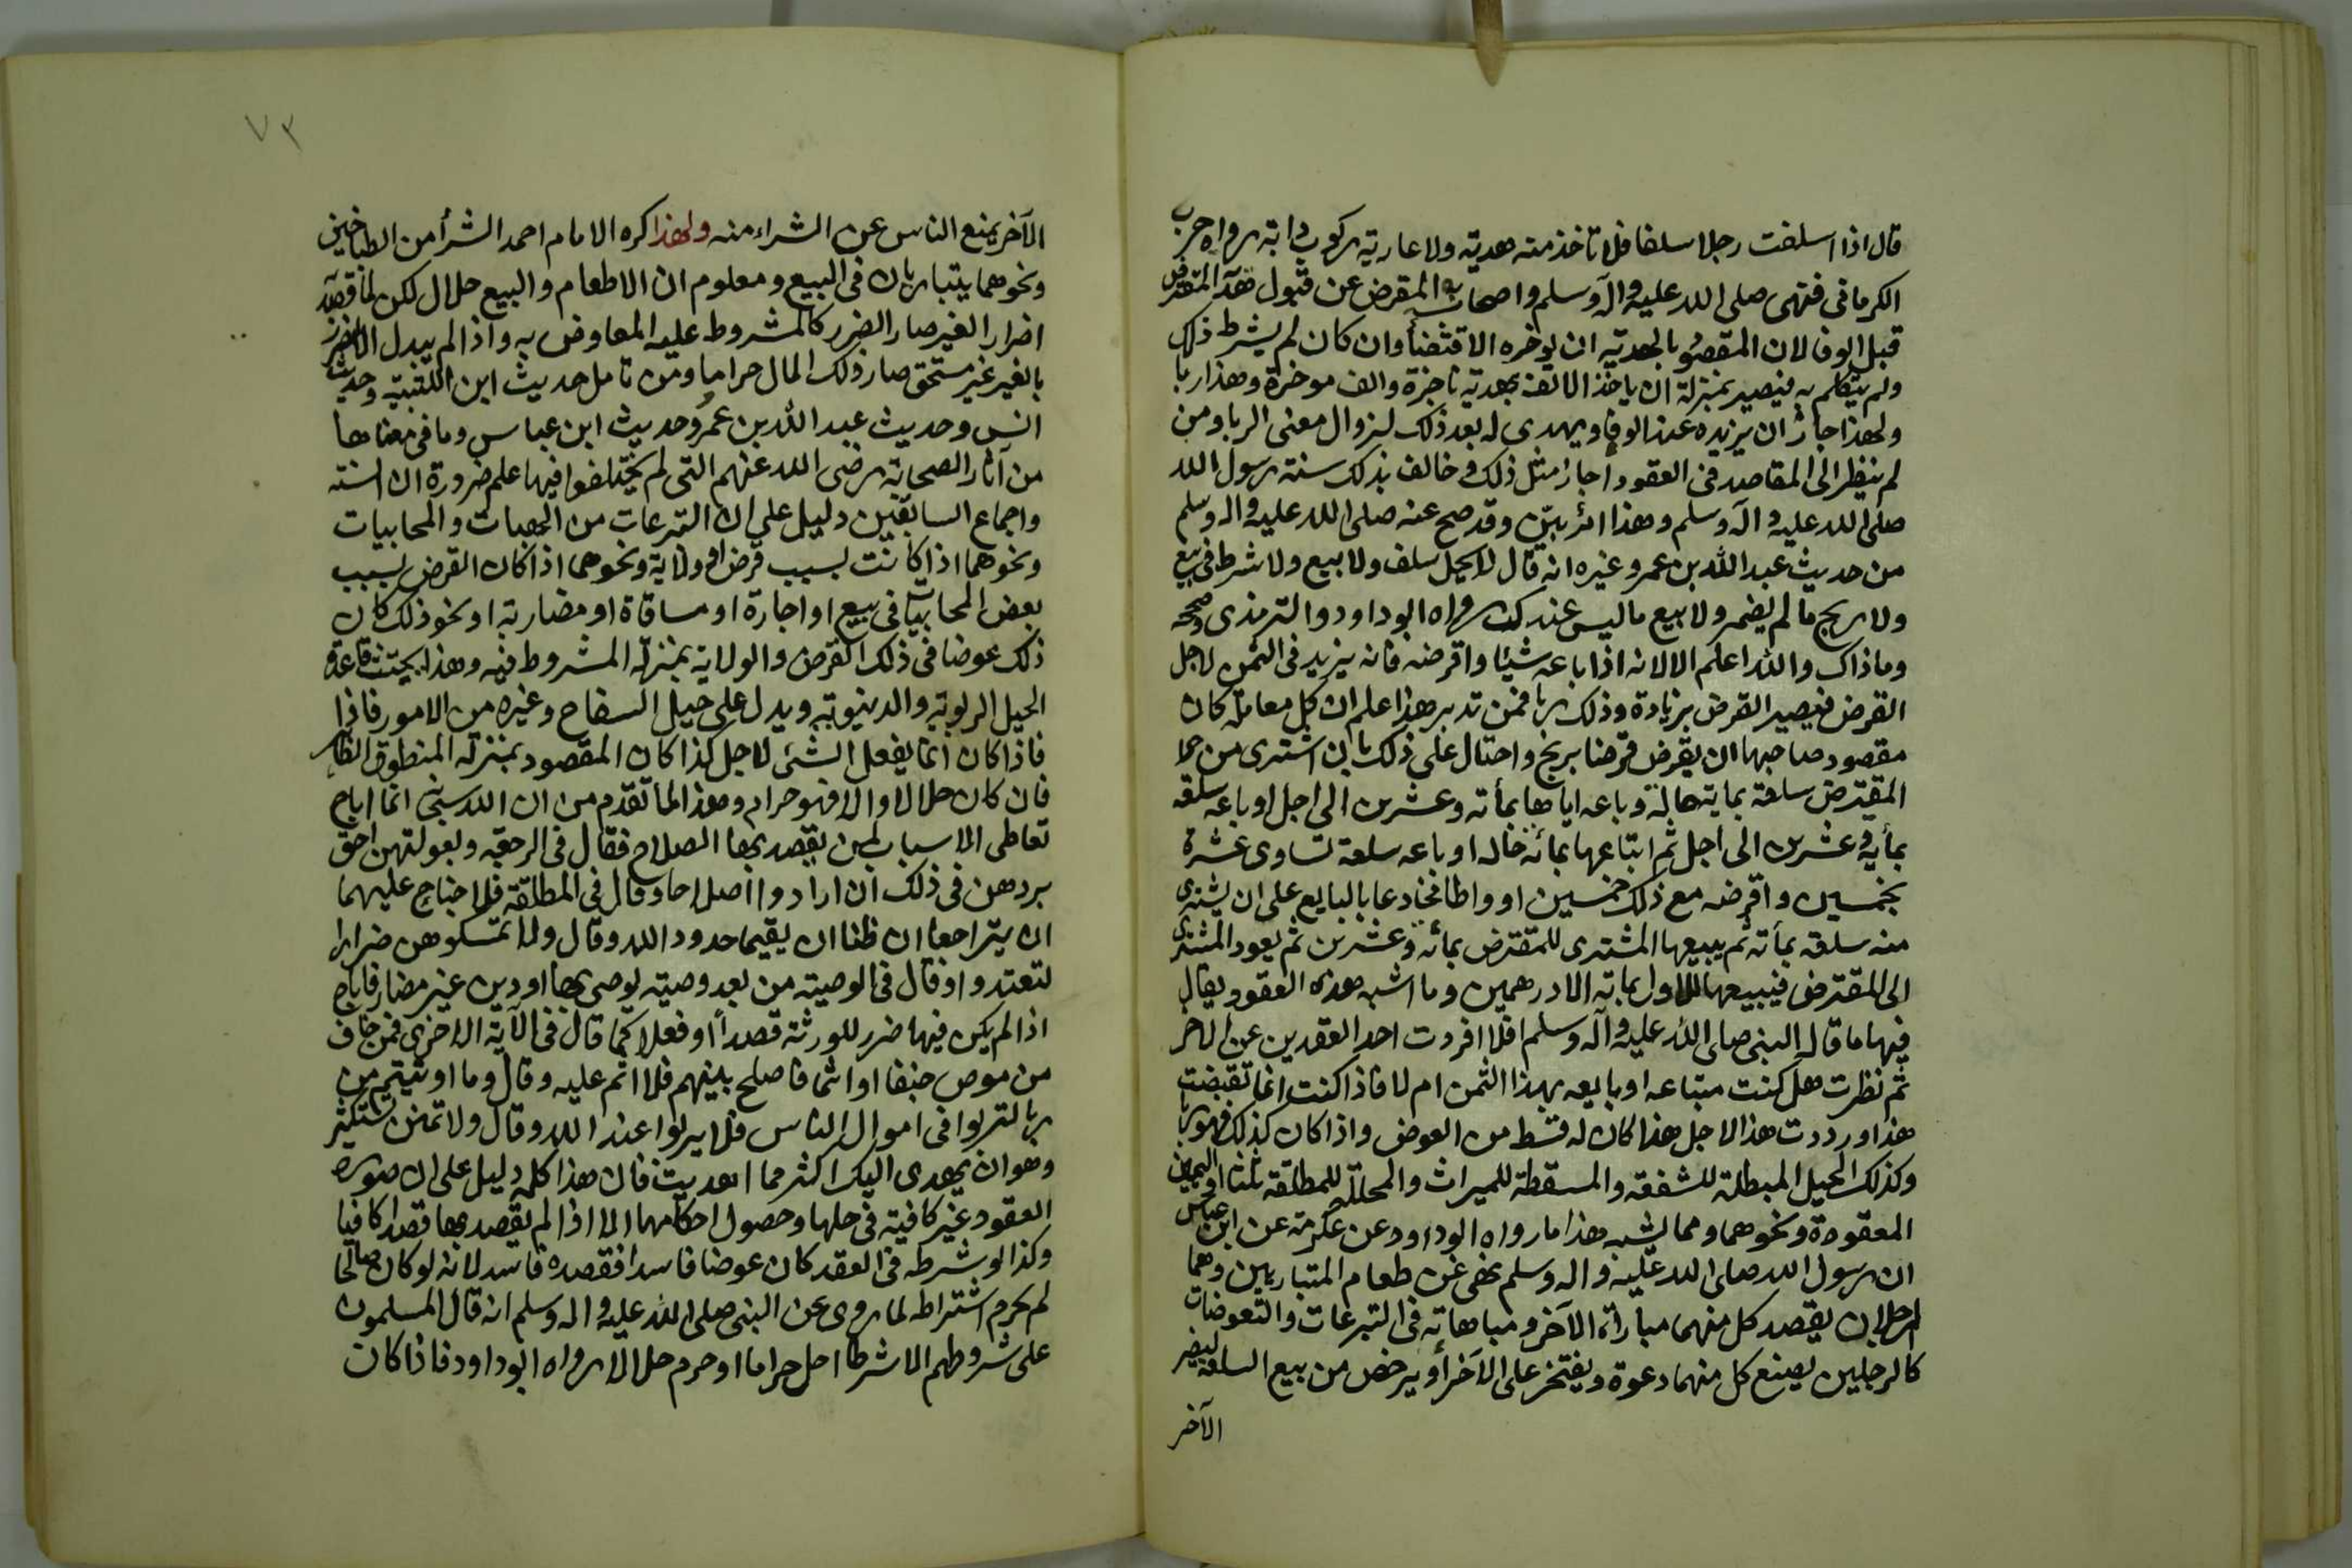 قال اذا اسلفت رجلا سلفا فلا تاخذ منه هدية ولا عارية ركوب دابة رواه حرب
الكرمانى فنهى صلى الله عليه وآله وسلم واصحابه المقرض عن قبول هدية المقترض
قبل الوفا لان المقصود بالهدية ان يوخره الاقتضأ وان كان لم يشرط ذلك
ولم يتكلم به فيصير بمنزلة ان ياخذ الالف بهدية ناجزة والف موخرة وهذا ربا
ولهذا جاز ان يزيده عند الوفا ويهدى له بعد ذلك لزوال معنى الربا ومن
لم ينظر الى المقاصد فى العقود اجاز مثل ذلك وخالف بذلك سنة رسول الله
صلى الله عليه وآله وسلم وهذا امر بيّن وقد صح عنه صلى الله عليه واله وسلم
من حديث عبد الله بن عمر وغيره انه قال لا يحل سلف ولا بيع ولا شرط فى بيع
ولا ربح مالم يضمر ولا بيع ماليس عندك رواه ابوداود والترمذى وصححه
وما ذاك والله اعلم الا لانه اذا باعه شيئا واقرضه فانه يزيد فى الثمن لاجل
القرض فيصير القرض بزيادة وذلك ربا فمن تدبر هذا علم ان كل معاملة كان
مقصود صاحبها ان يقرض قرضا بربح واحتال على ذلك بان اشترى من
المقترض سلعة بماية حالة وباعه اياها بمأته وعشرين الى اجل او باعه سلعه
بمأية وعشرين الى اجل ثم ابتاعها بمائه حاله او باعه سلعة تساوى عشرة
بخمسين واقرضه مع ذلك خمسين او واطا مخادعا بالبايع على ان يشترى
منه سلعه بمأته ثم يبيعها المشترى للمقترض بمأئه وعشرين ثم يعود المشترى
الى المقترض فيبيعها للاول بماته الا درهمين وما اشبه هذه العقود يقال
فيها ما قاله النبى صلى الله عليه وآله وسلم افلا افردت احد العقدين عن الاخر
ثم نظرت هل كنت مبتاعه او بايعه بهذا الثمن ام لا فاذا كنت انما نقبضت
هذا ورددت هذا لاجل هذا كان له قسط من العوض واذا كان كذلك فهو ربا
وكذلك الحيل المبطلة للشفعه والمسقطة للميراث والمحللة للمطلقه ثلثا واليمين
المعقودة ونحوهما ومما يشبه هذا ما رواه ابوداود عن عكرمة عن ابن عباس
ان رسول الله صلى الله عليه واله وسلم نهى عن طعام المتباريين وهما
الرجلان يقصد كل منهما مباراة الآخر ومباهاته فى التبرعات والتعوضات
كالرجلين يصنع كل منهما دعوة ويفتخر على الآخر أو يرخص من بيع السلعه ليضر
الآخر
٧٣
الآخر بمنع الناس عن الشراء منه ولهذا كره الامام احمد الشرأ من الطباخين
ونحوهما يتباريان فى البيع ومعلوم ان الاطعام والبيع حلال لكن لما قصد
اضرار الغير صار الضرر كالمشروط عليه المعاوض به واذا لم يبدل الا لضرر
بالغير غير مستحق صار ذلك المال حراما ومن تامل حديث ابن اللتبية وحديث
انس وحديث عبد الله بن عمر وحديث ابن عباس وما فى معناها
من آثار الصحابة رضى الله عنهم التى لم يختلفوا فيها علم ضرورة ان السنة
واجماع السابقين دليل على ان التبرعات من الهبات والمحابيات
ونحوهما اذا كانت بسبب قرض او ولاية ونحوهما اذا كان القرض بسبب
بعض المحابيات فى بيع او اجارة او مساقاة او مضاربة او نحو ذلك كان
ذلك عوضا فى ذلك القرض والولاية بمنزلة المشروط فيه وهذا يجتث قاعدة
الحيل الربوية والدنيوية ويدل على حيل السفاح وغيره من الامور فاذا
فاذا كان انما يفعل الشئ لاجل كذا كان المقصود بمنزلة المنطوق الظاهر
فان كان حلالا والا فهو حرام وهذا لما تقدم من ان الله سبحن انما اباح
تعاطى الاسباب لمن يقصد بها الصلاح فقال فى الرجعه وبعولتهن احق
بردهن فى ذلك ان ارادوا اصلاحا وقال فى المطلقة فلا جناح عليهما
ان يتراجعا ان ظنا ان يقيما حدود الله وقال ولا تمسكوهن ضرارا
لتعتدوا وقال فى الوصية من بعد وصية يوصى بها اودين غير مضار فاباح
اذا لم يكن فيها ضرر للورثة قصداً او فعلا كما قال فى الآية الاخرى فمن خاف
من موص جنفا او اثما فاصلح بينهم فلا اثم عليه وقال وما اوتيتم من
ربا لتربوا فى اموال الناس فلا يربوا عند الله وقال ولا تمنن تستكثر
وهو ان يهدى اليك اكثر مما اهديت فان هذا كله دليل على ان صورة
العقود غير كافية فى حلها وحصول احكامها الا اذا لم يقصد بها قصدا كافيا
وكذا لو شرطه فى العقد كان عوضا فاسدا فقصده فاسد لانه لو كان صالحا
لم يحرم اشتراطه لما روى عن النبى صلى الله عليه واله وسلم انه قال المسلمون
على شروطهم الا شرطا احل حراما او حرم حلالا رواه ابوداود فاذا كان